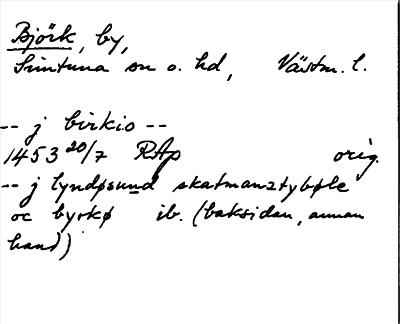 Björk, by,
Simtuna sn o. hd, Västm. l.
-- j birkio --
1453 20/7 RAp orig.
-- j lyndøsund skatmanztybøle
oc byrkø ib. (baksidan, annan
hand)